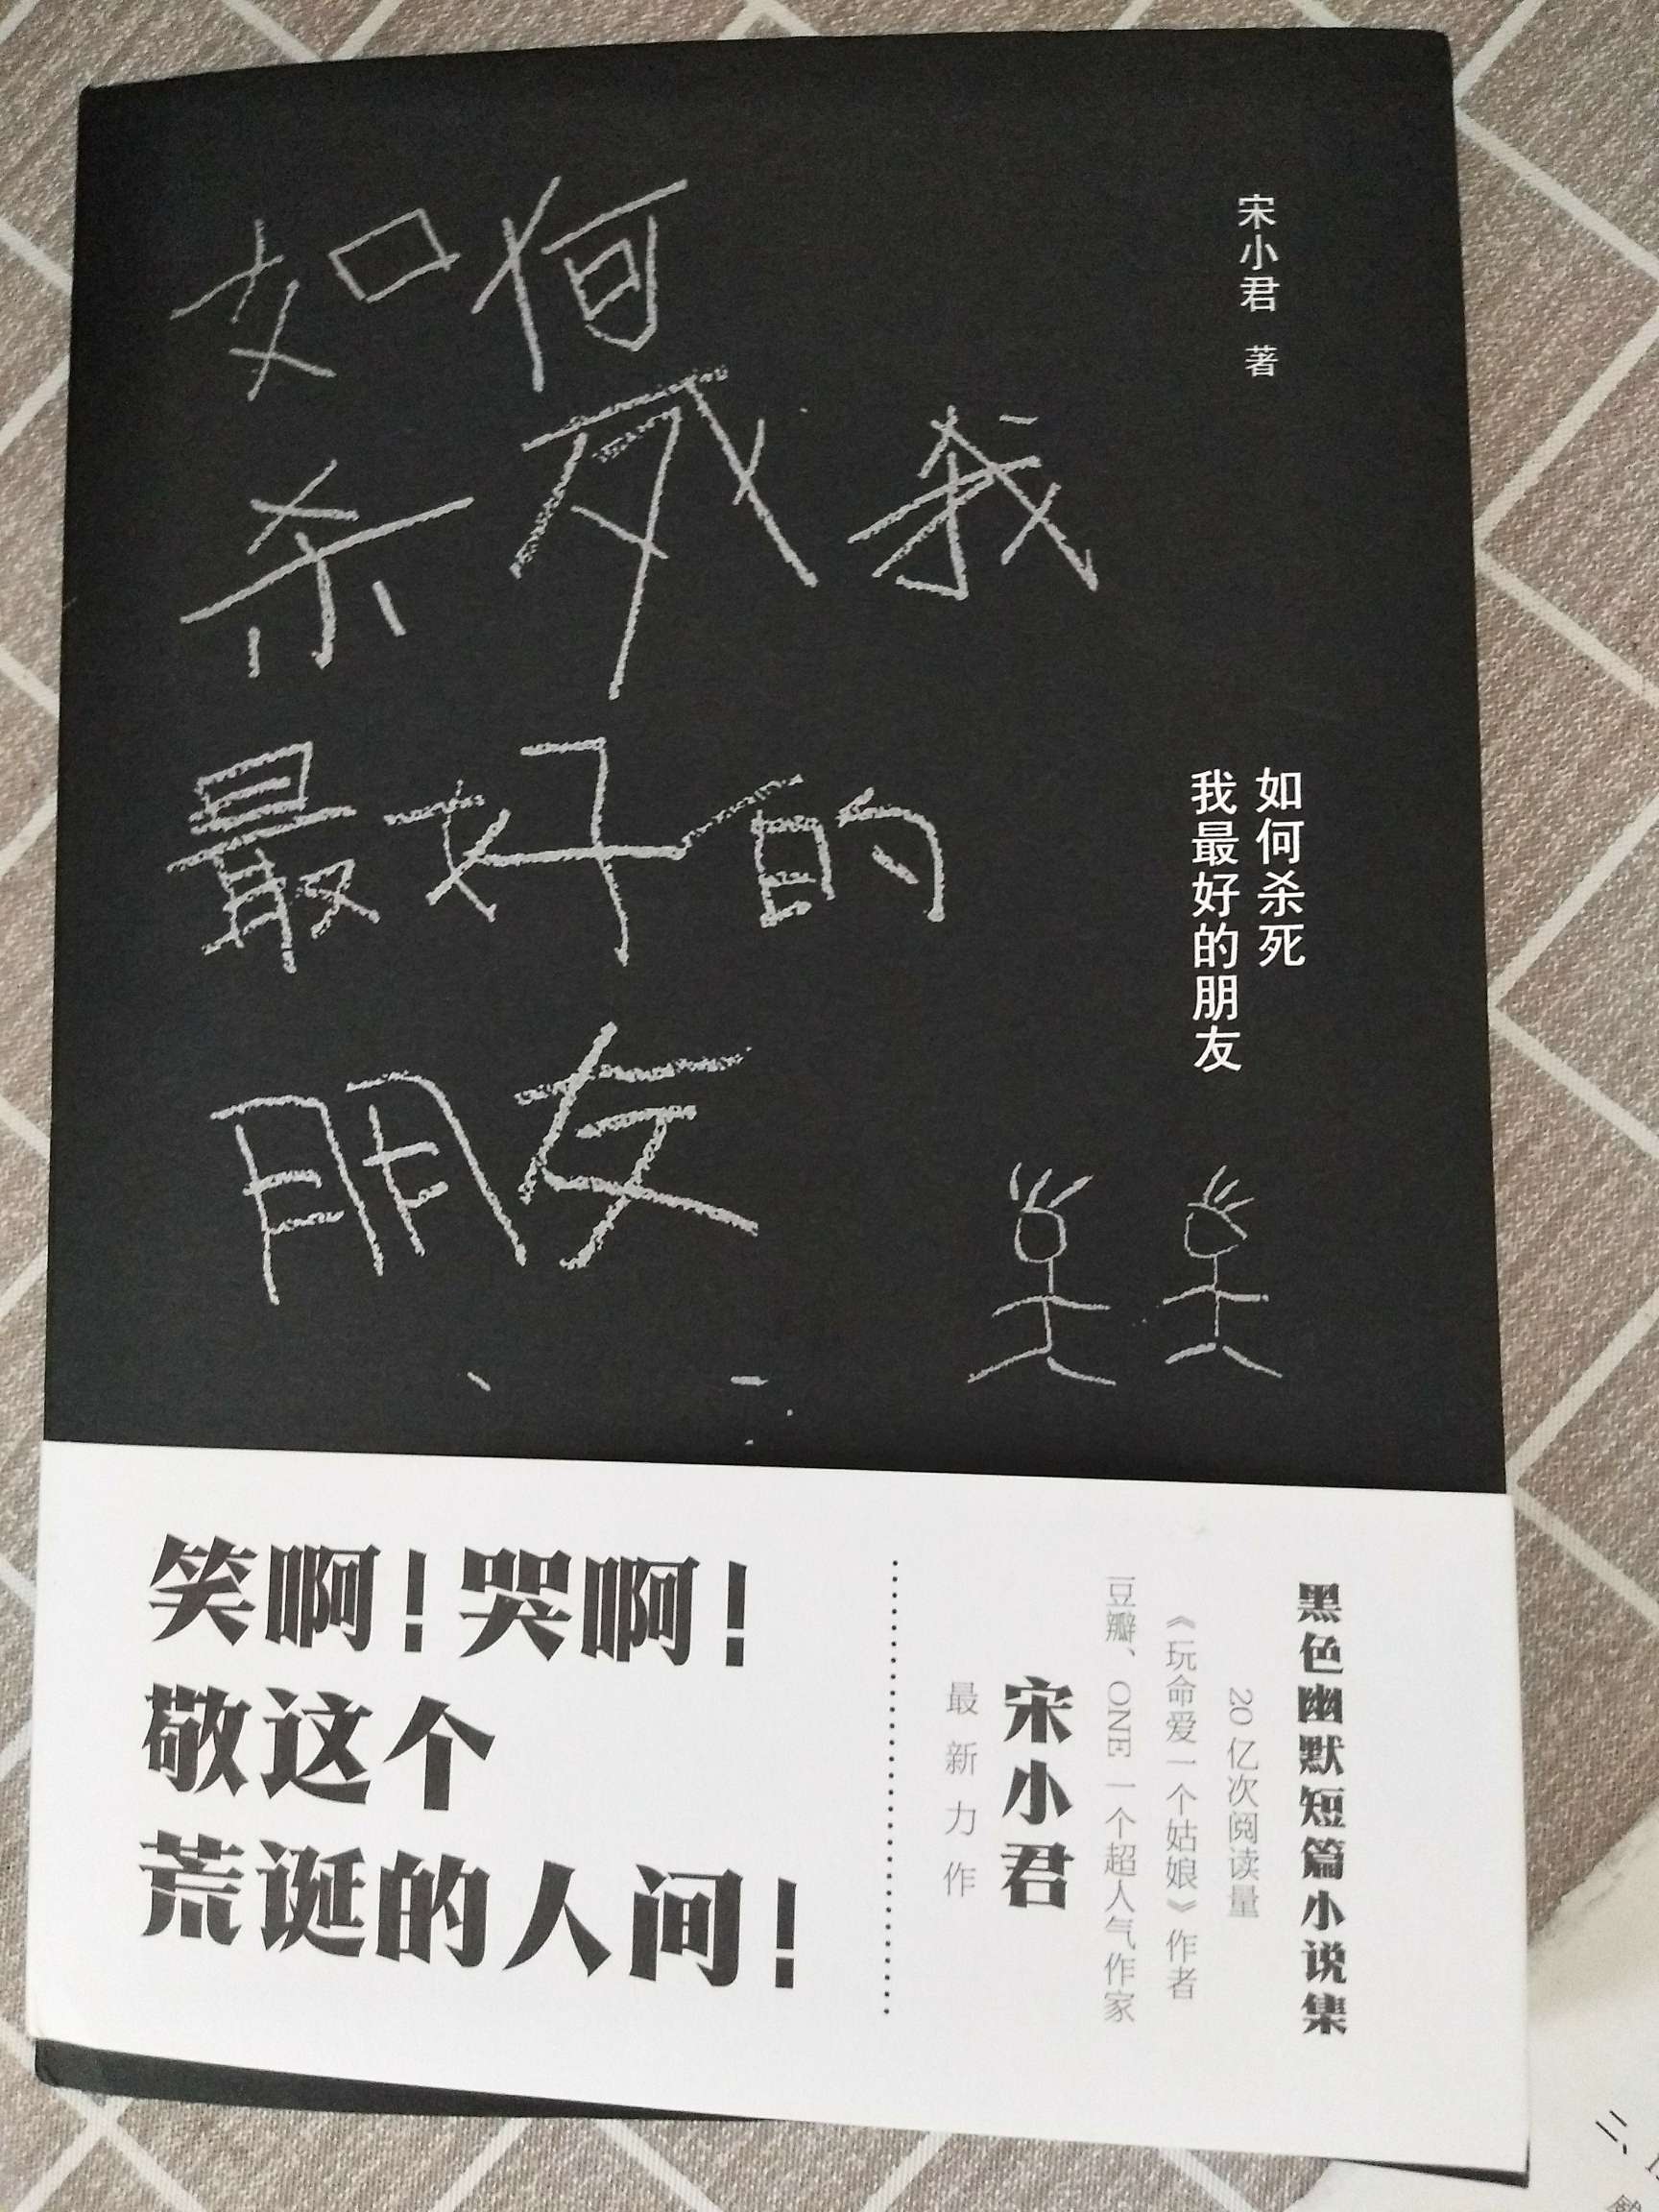 如何
杀死我
最好的
朋友
宋小君 著
如何杀死
我最好的朋友
笑啊！哭啊！
敬这个
荒诞的人间！
黑色幽默短篇小说集
20亿次阅读量
《玩命爱一个姑娘》作者
豆瓣、ONE一个超人气作家
宋小君
最新力作